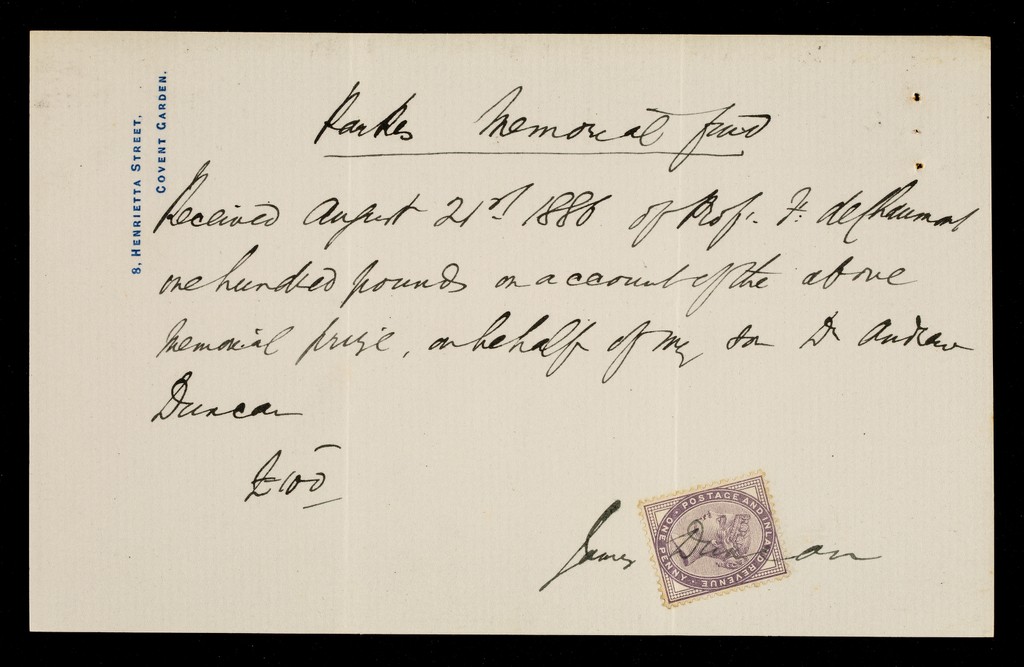 8, HENRIETTA STREET,
COVENT GARDEN.
Parkes Memorial fund
Received August 21st 1886 of Prof: F: de Chaumont
one hundred pounds on account of the above
memorial prize, on behalf of my son Dr Andrew
Duncan
£100
James Duncan
POSTAGE AND INLAND REVENUE
ONE PENNY